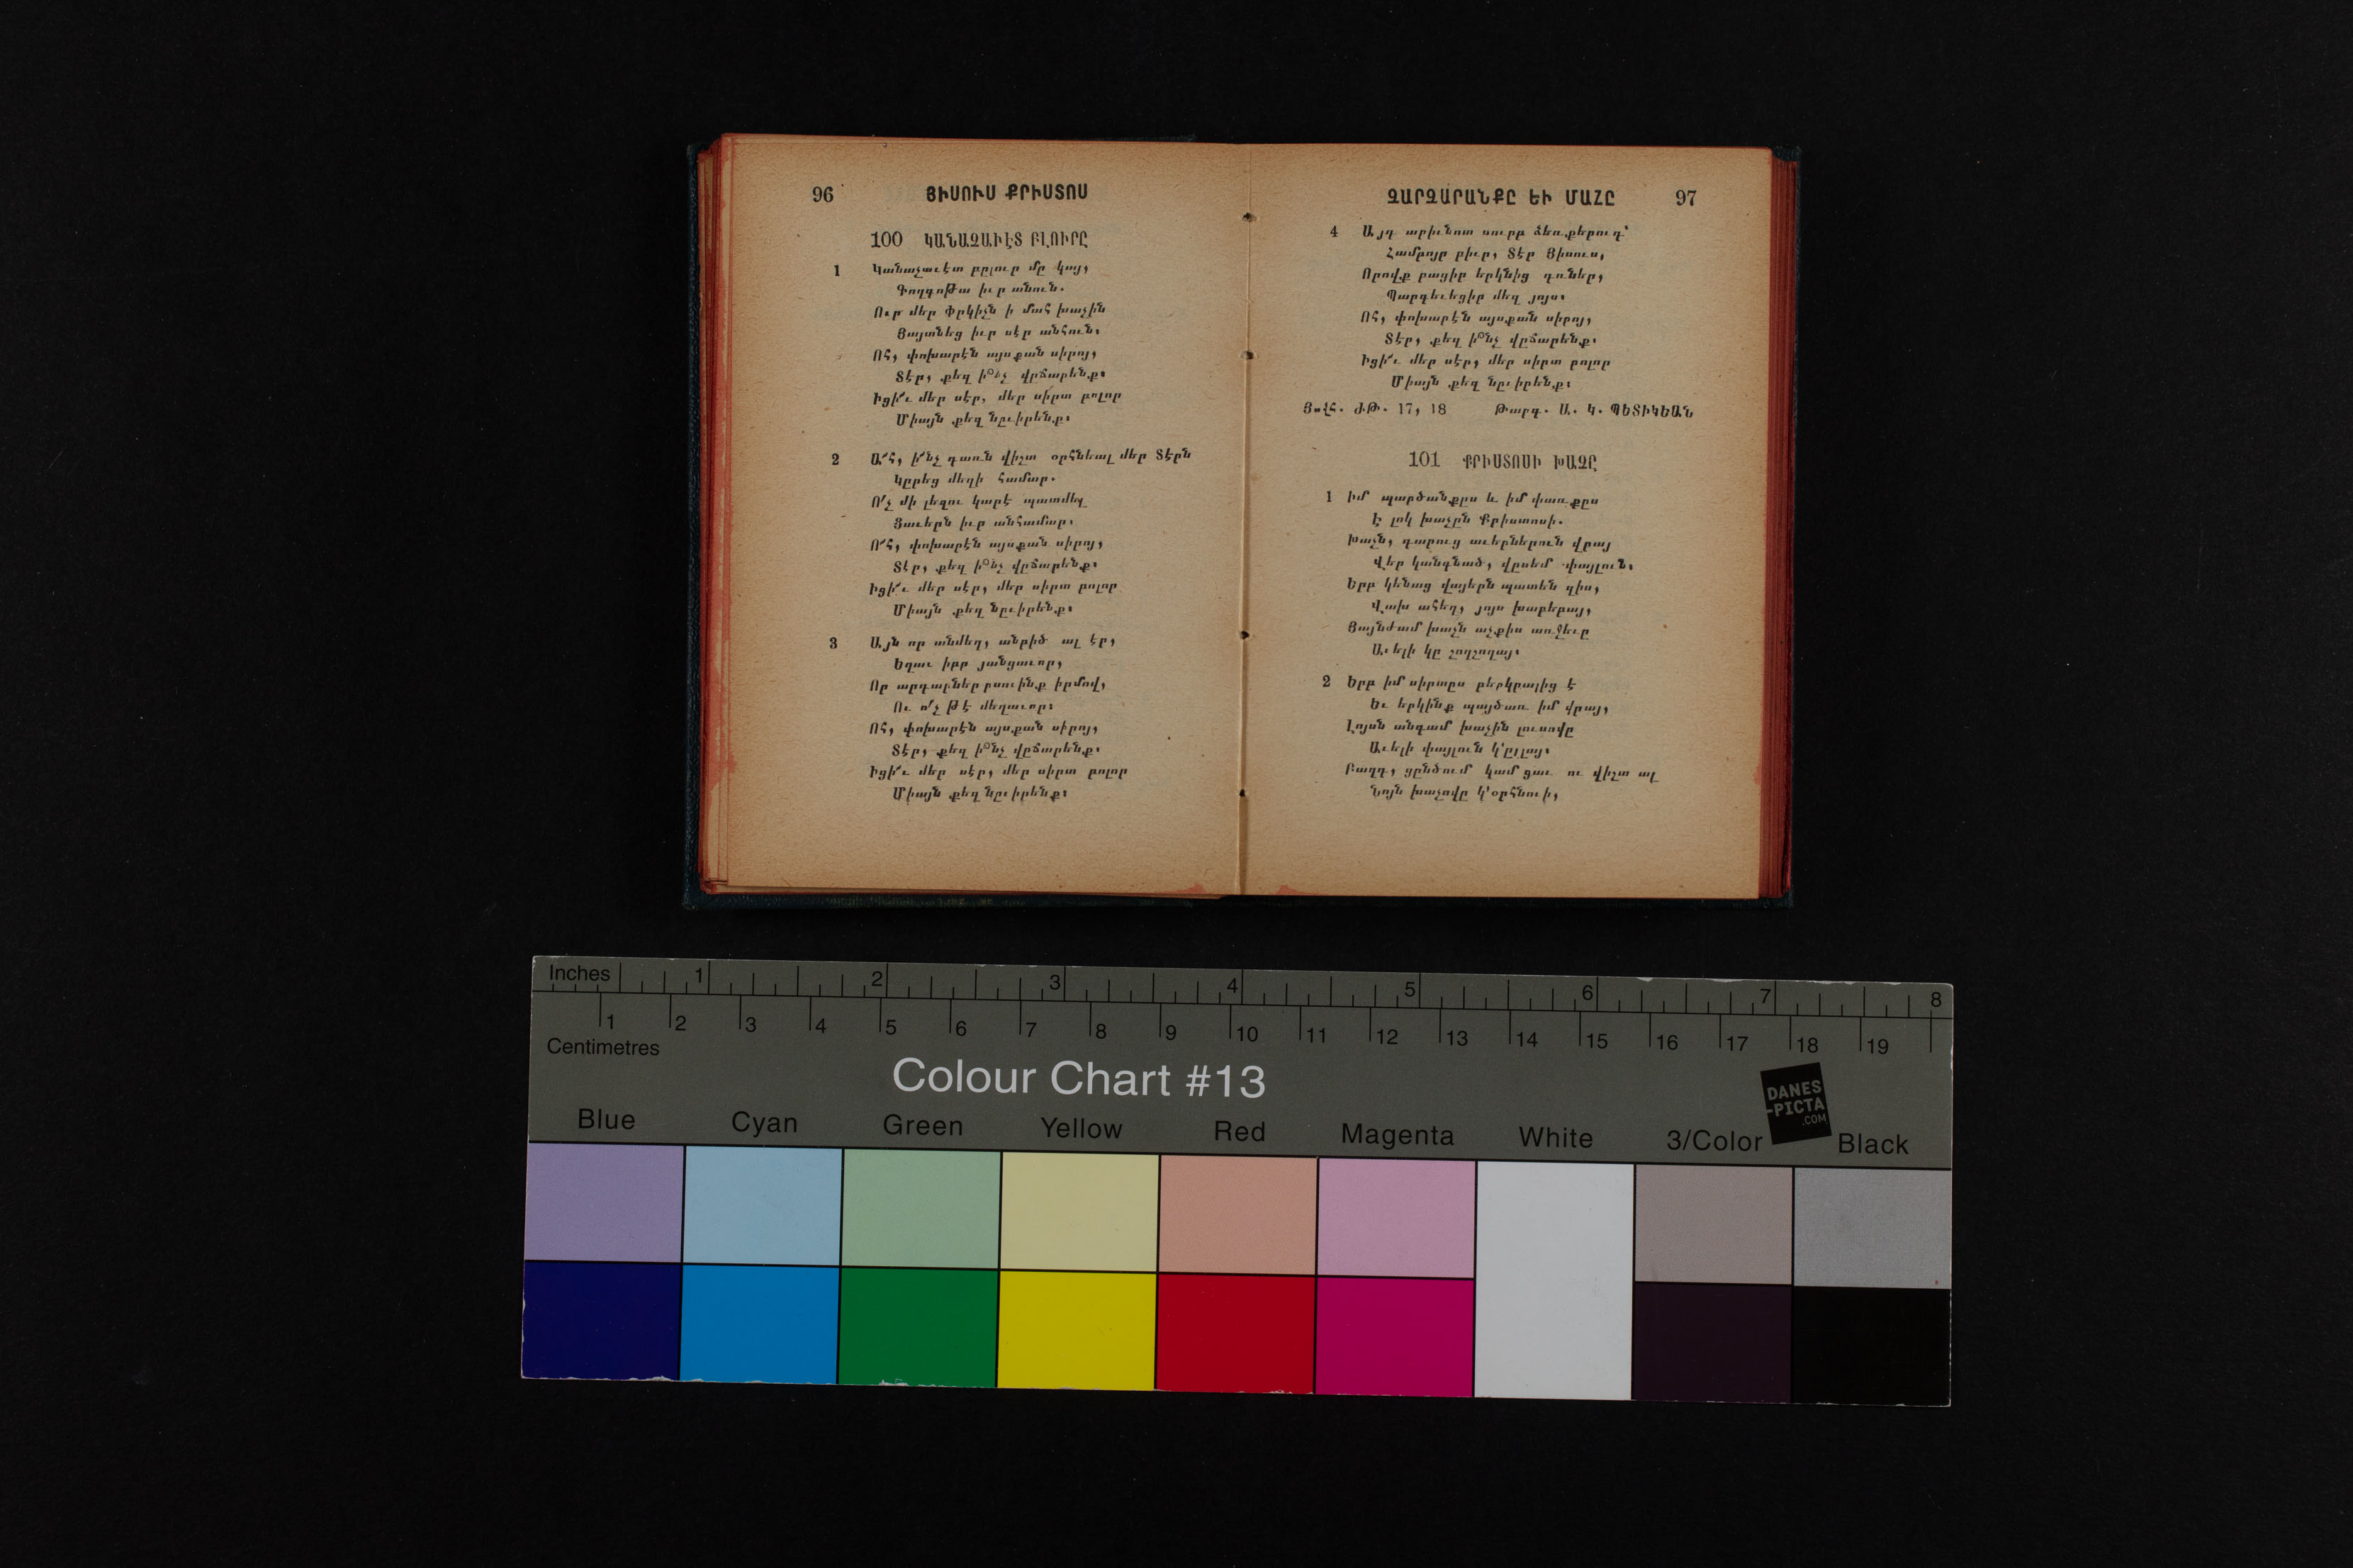 96 ՅԻՍՈՒՍ ՔՐԻՍՏՈՍ
100 ԿԱՆԱՉԱՒԷՏ ԲԼՈՒՐԸ
1 Կանաչաւէտ բըլուր մը կայ,
Գողգոթա իւր անուն.
Ուր մեր Փրկիչն ի մահ խաչին
Յայտնեց իւր սէր անհուն։
Ոհ, փոխարէն այսքան սիրոյ,
Տէր, քեզ ի՞նչ վըճարենք։
Իցի՜ւ մեր սէր, մեր սիրտ բոլոր
Միայն քեզ նըւիրենք։
2 Ա՜հ, ի՜նչ դառն վիշտ օրհնեալ մեր Տէրն
Կըրեց մեզի համար.
Ո՛չ մի լեզու կարէ պատմել
Ցաւերն իւր անհամար։
Ո՜հ, փոխարէն այսքան սիրոյ,
Տէր, քեզ ի՞նչ վըճարենք։
Իցի՜ւ մեր սէր, մեր սիրտ բոլոր
Միայն քեզ նըւիրենք։
3 Այն որ անմեղ, անբիծ ալ էր,
Եղաւ իբր յանցաւոր,
Որ արդարներ ըսուինք իրմով,
Ու ո՛չ թէ մեղաւոր։
Ոհ, փոխարէն այսքան սիրոյ,
Տէր, քեզ ի՞նչ վըճարենք։
Իցի՜ւ մեր սէր, մեր սիրտ բոլոր
Միայն քեզ նըւիրենք։
ՉԱՐՉԱՐԱՆՔԸ ԵՒ ՄԱՀԸ 97
4 Այդ արիւնոտ սուրբ ձեռքերուդ՝
Համբոյր բիւր, Տէր Յիսուս,
Որովք բացիր երկնից դռներ,
Պարգեւեցիր մեզ յոյս։
Ոհ, փոխարէն այսքան սիրոյ,
Տէր, քեզ ի՞նչ վըճարենք։
Իցի՜ւ մեր սէր, մեր սիրտ բոլոր
Միայն քեզ նըւիրենք։
Յովհ. ԺԹ. 17, 18 Թարգ. Ա. Կ. ՊԵՏԻԿԵԱՆ
101 ՔՐԻՍՏՈՍԻ ԽԱՉԸ
1 Իմ պարծանքըս և իմ փառքըս
Է լոկ խաչըն Քրիստոսի.
Խաչն, դարուց աւերներուն վրայ
Վեր կանգնած, վըսեմ փայլուն։
Երբ կենաց վայերն պատեն զիս,
Վախ ահեղ, յոյս խաբեբայ,
Յայնժամ խաչն աչքիս առջեւը
Աւելի կը շողշողայ։
2 Երբ իմ սիրտըս բերկրալից է
Եւ երկինք պայծառ իմ վրայ,
Լոյսն անգամ խաչին լուսովը
Աւելի փայլուն կ՚ըլլայ։
Բաղդ, ցընծում կամ ցաւ ու վիշտ ալ
Նոյն խաչովը կ՚օրհնուի,
Inches 1 2 3 4 5 6 7 8
1 2 3 4 5 6 7 8 9 10 11 12 13 14 15 16 17 18 19
Centimetres
Colour Chart #13
DANES
-PICTA
.COM
Blue Cyan Green Yellow Red Magenta White 3/Color Black